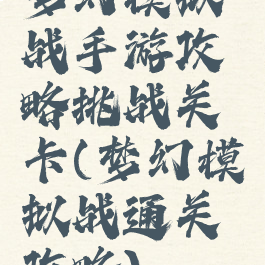 梦幻模拟
战手游攻
略挑战关
卡(梦幻模
拟战通关
攻略)